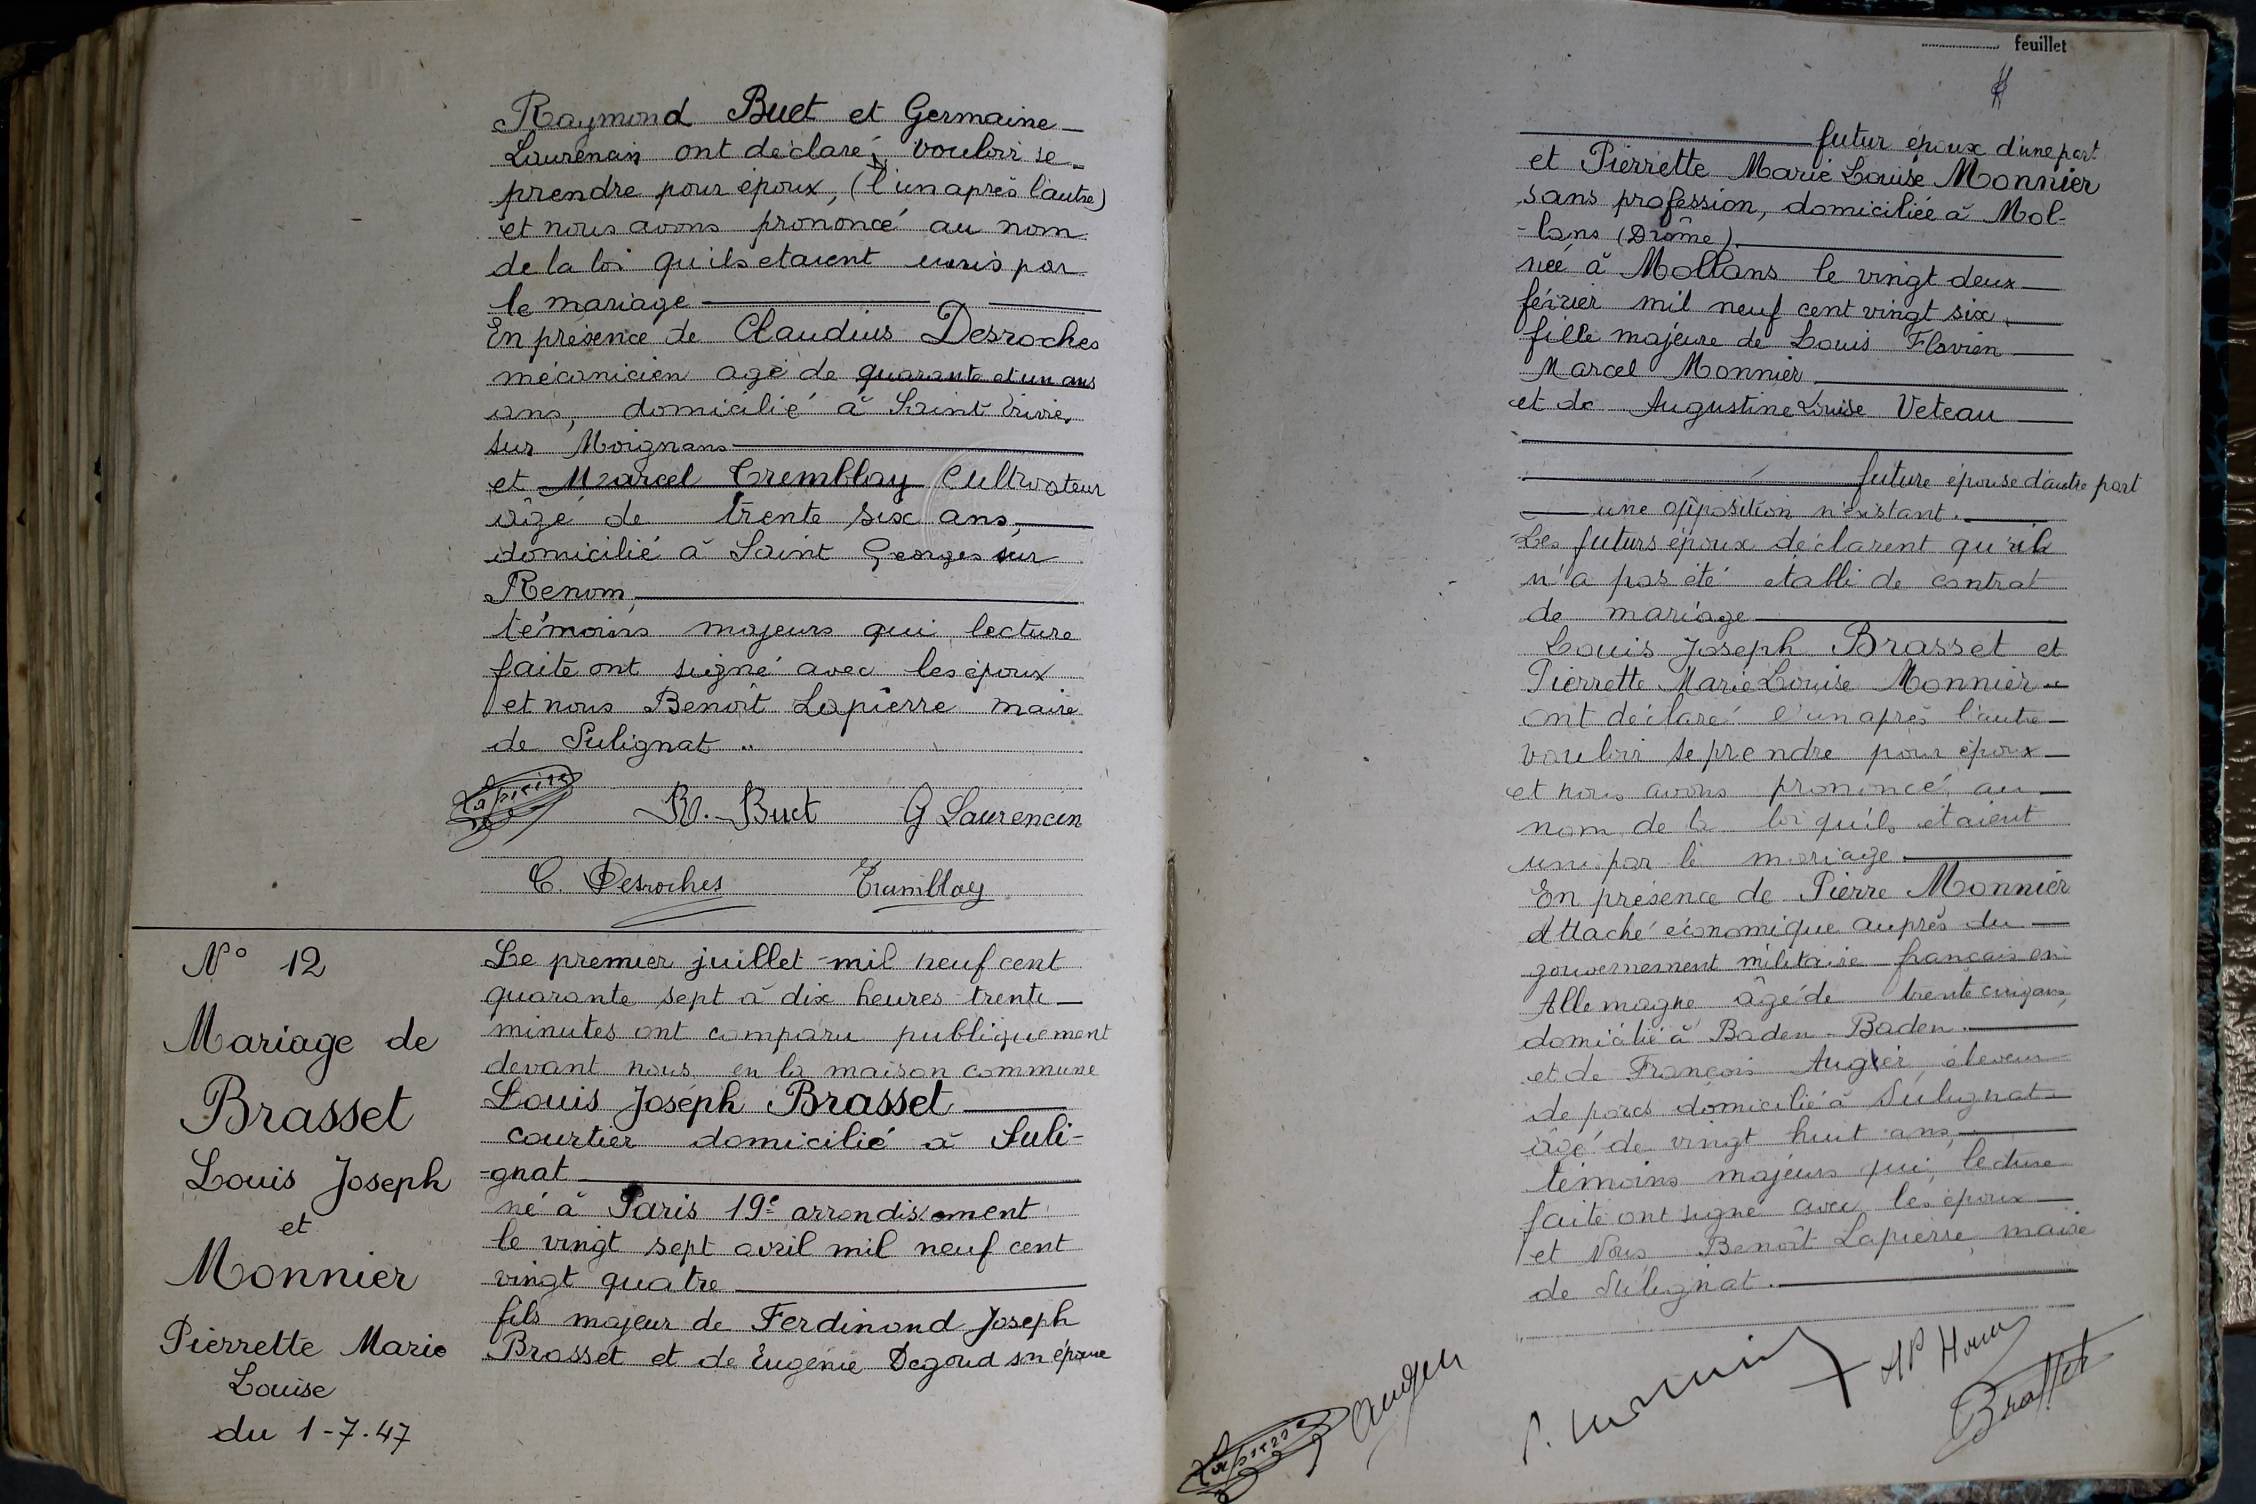 Raymond Buet et Germaine
Laurencin ont déclaré, vouloir se
prendre pour époux, (l'un après l'autre)
et nous avons prononcé au nom
de la loi qu'ils etaient unis par
le mariage
En présence de Claudius Desroches
mécanicien agé de quarante et un ans
ans, domicilié à Saint Trivier
sur Moignans
et Marcel Tremblay Cultivateur
âgé de trente six ans,
domicilié à Saint Georges sur
Renom,
témoins majeurs qui, lecture
faite ont signé avec les époux
et nous Benoît Lapierre maire
de Sulignat ..
Lapierre R. Buet G Laurencin
C. Desroches Tremblay
N° 12
Mariage de
Brasset
Louis Joseph
et
Monnier
Pierrette Marie
Louise
du 1-7.47
Le premier juillet mil neuf cent
quarante sept à dix heures trente
minutes ont comparu publiquement
devant nous en la maison commune
Louis Joseph Brasset
courtier domicilié à Suli-
-gnat
né à Paris 19e arrondissement
le vingt sept avril mil neuf cent
vingt quatre
fils majeur de Ferdinand Joseph
Brasset et de Eugénie Degoud son épouse
feuillet
futur époux d'une part
et Pierrette Marie Louise Monnier
sans profession, domiciliée à Mol-
-lans (Drôme).
née à Mollans le vingt deux
février mil neuf cent vingt six,
fille majeure de Louis Flavien
Marcel Monnier
et de Augustine Louise Veteau
future épouse d'autre part
une opposition n'existant.
Les futurs époux déclarent qu'il
n'a pas été etabli de contrat
de mariage
Louis Joseph Brasset et
Pierrette Marie Louise Monnier
ont déclaré l'un après l'autre
vouloir se prendre pour époux
et nous avons prononcé, au
nom de la loi qu'ils étaient
unis par le mariage.
En présence de Pierre Monnier
Attaché économique auprès du
gouvernement militaire français en
Allemagne âgé de trente cinq ans,
domicilié à Baden-Baden.
et de François Augier, éleveur
de porcs domicilié à Sulignat
âgé de vingt huit ans,
témoins majeurs qui, lecture
faite ont signé avec les époux
et Nous Benoît Lapierre, maire
de Sulignat.
Lapierre Augier P. Monnier Brasset